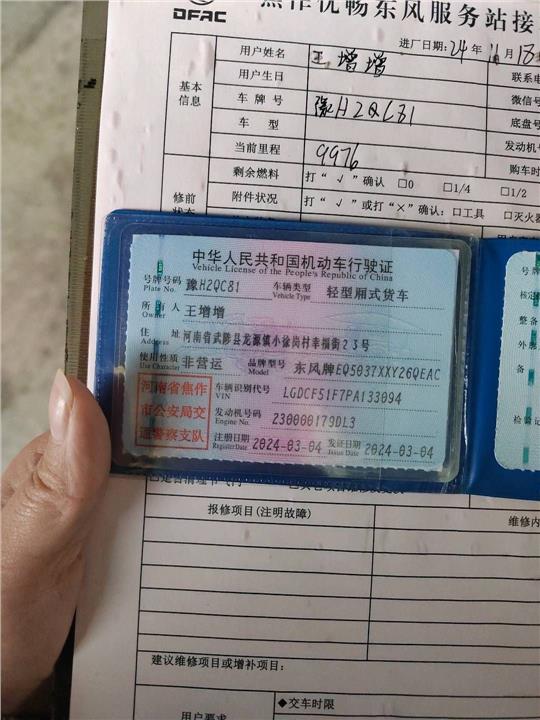 DFAC
焦作优畅东风服务站接
进厂日期: 24 年 11 月 18
基本
信息
用户姓名 王增增
用户生日 联系电
车牌号 豫H2QC81 微信号
车型 底盘号
当前里程 9976 发动机号
购车时
修前
状态
剩余燃料 打“√”确认 □0 □1/4 □1/2
附件状况 打“√”或打“×”确认: □工具 □灭火器
中华人民共和国机动车行驶证
Vehicle License of the People's Republic of China
号牌号码 豫H2QC81 车辆类型 轻型厢式货车
Plate No. Vehicle Type
所有人 王增增
Owner
住址 河南省武陟县龙源镇小徐岗村幸福街23号
Address
使用性质 非营运 品牌型号 东风牌EQ5037XXY26QEAC
Use Character Model
河南省焦作
市公安局交
通警察支队
车辆识别代号 LGDCF51F7PA133094
VIN
发动机号码 230000179DL3
Engine No.
注册日期 2024-03-04 发证日期 2024-03-04
Register Date Issue Date
号牌
核定
整备
外廓
备
检验记
报修项目(注明故障) 维修内
建议维修项目或增补项目:
用户要求 ◆交车时限